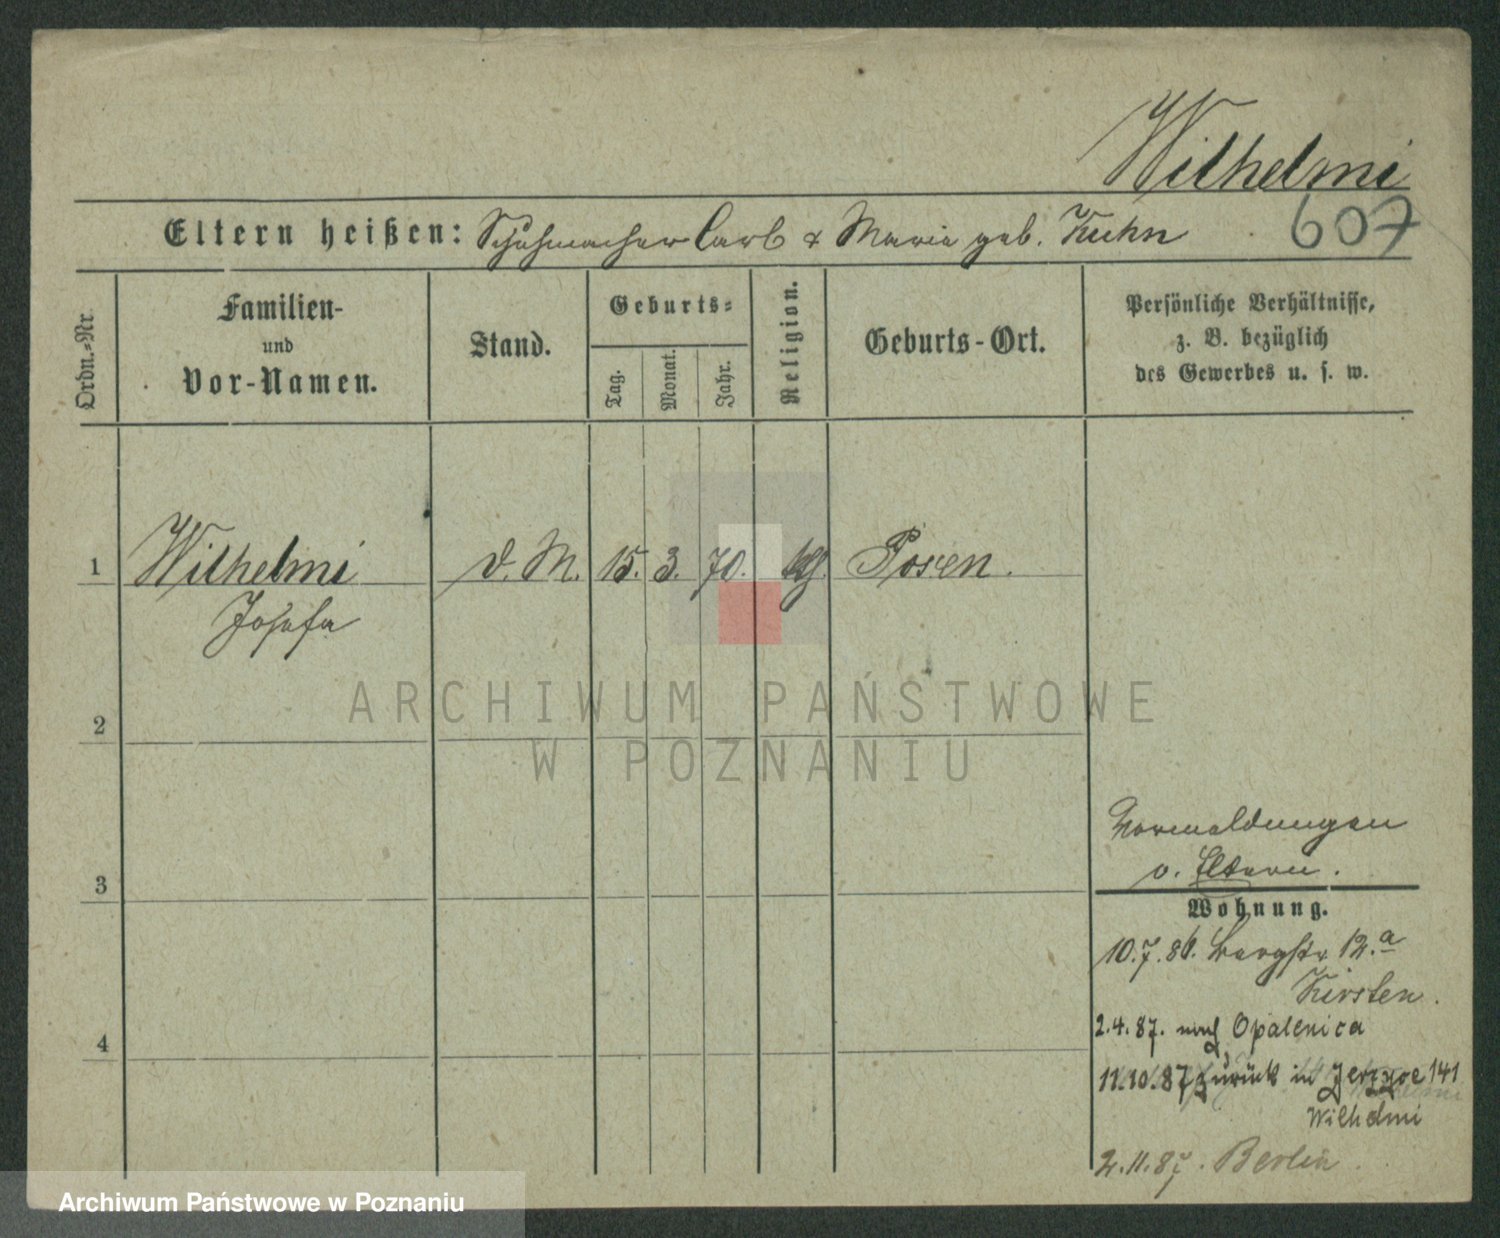 Wilhelmi
607
Eltern heißen: Schuhmacher Carl & Maria geb. Kuhn
Ordn.-Nr.
Familien-
und
Vor-Namen.
Stand.
Geburts-
Tag.
Monat.
Jahr.
Religion.
Geburts-Ort.
Persönliche Verhältnisse,
z. B. bezüglich
des Gewerbes u. s. w.
1 Wilhelmi d. M. 15. 3. 70. Posen.
Josefa
ARCHIWUM PAŃSTWOWE
W POZNANIU
2
3
4
Vormeldungen
v. Eltern.
Wohnung.
10.7.86. Bergstr 12.a
Kirsten.
2.4.87. nach Opalenica
11.10.87 zurück in Jerzyce 141
Wilhelmi
2.11.87. Berlin.
Archiwum Państwowe w Poznaniu